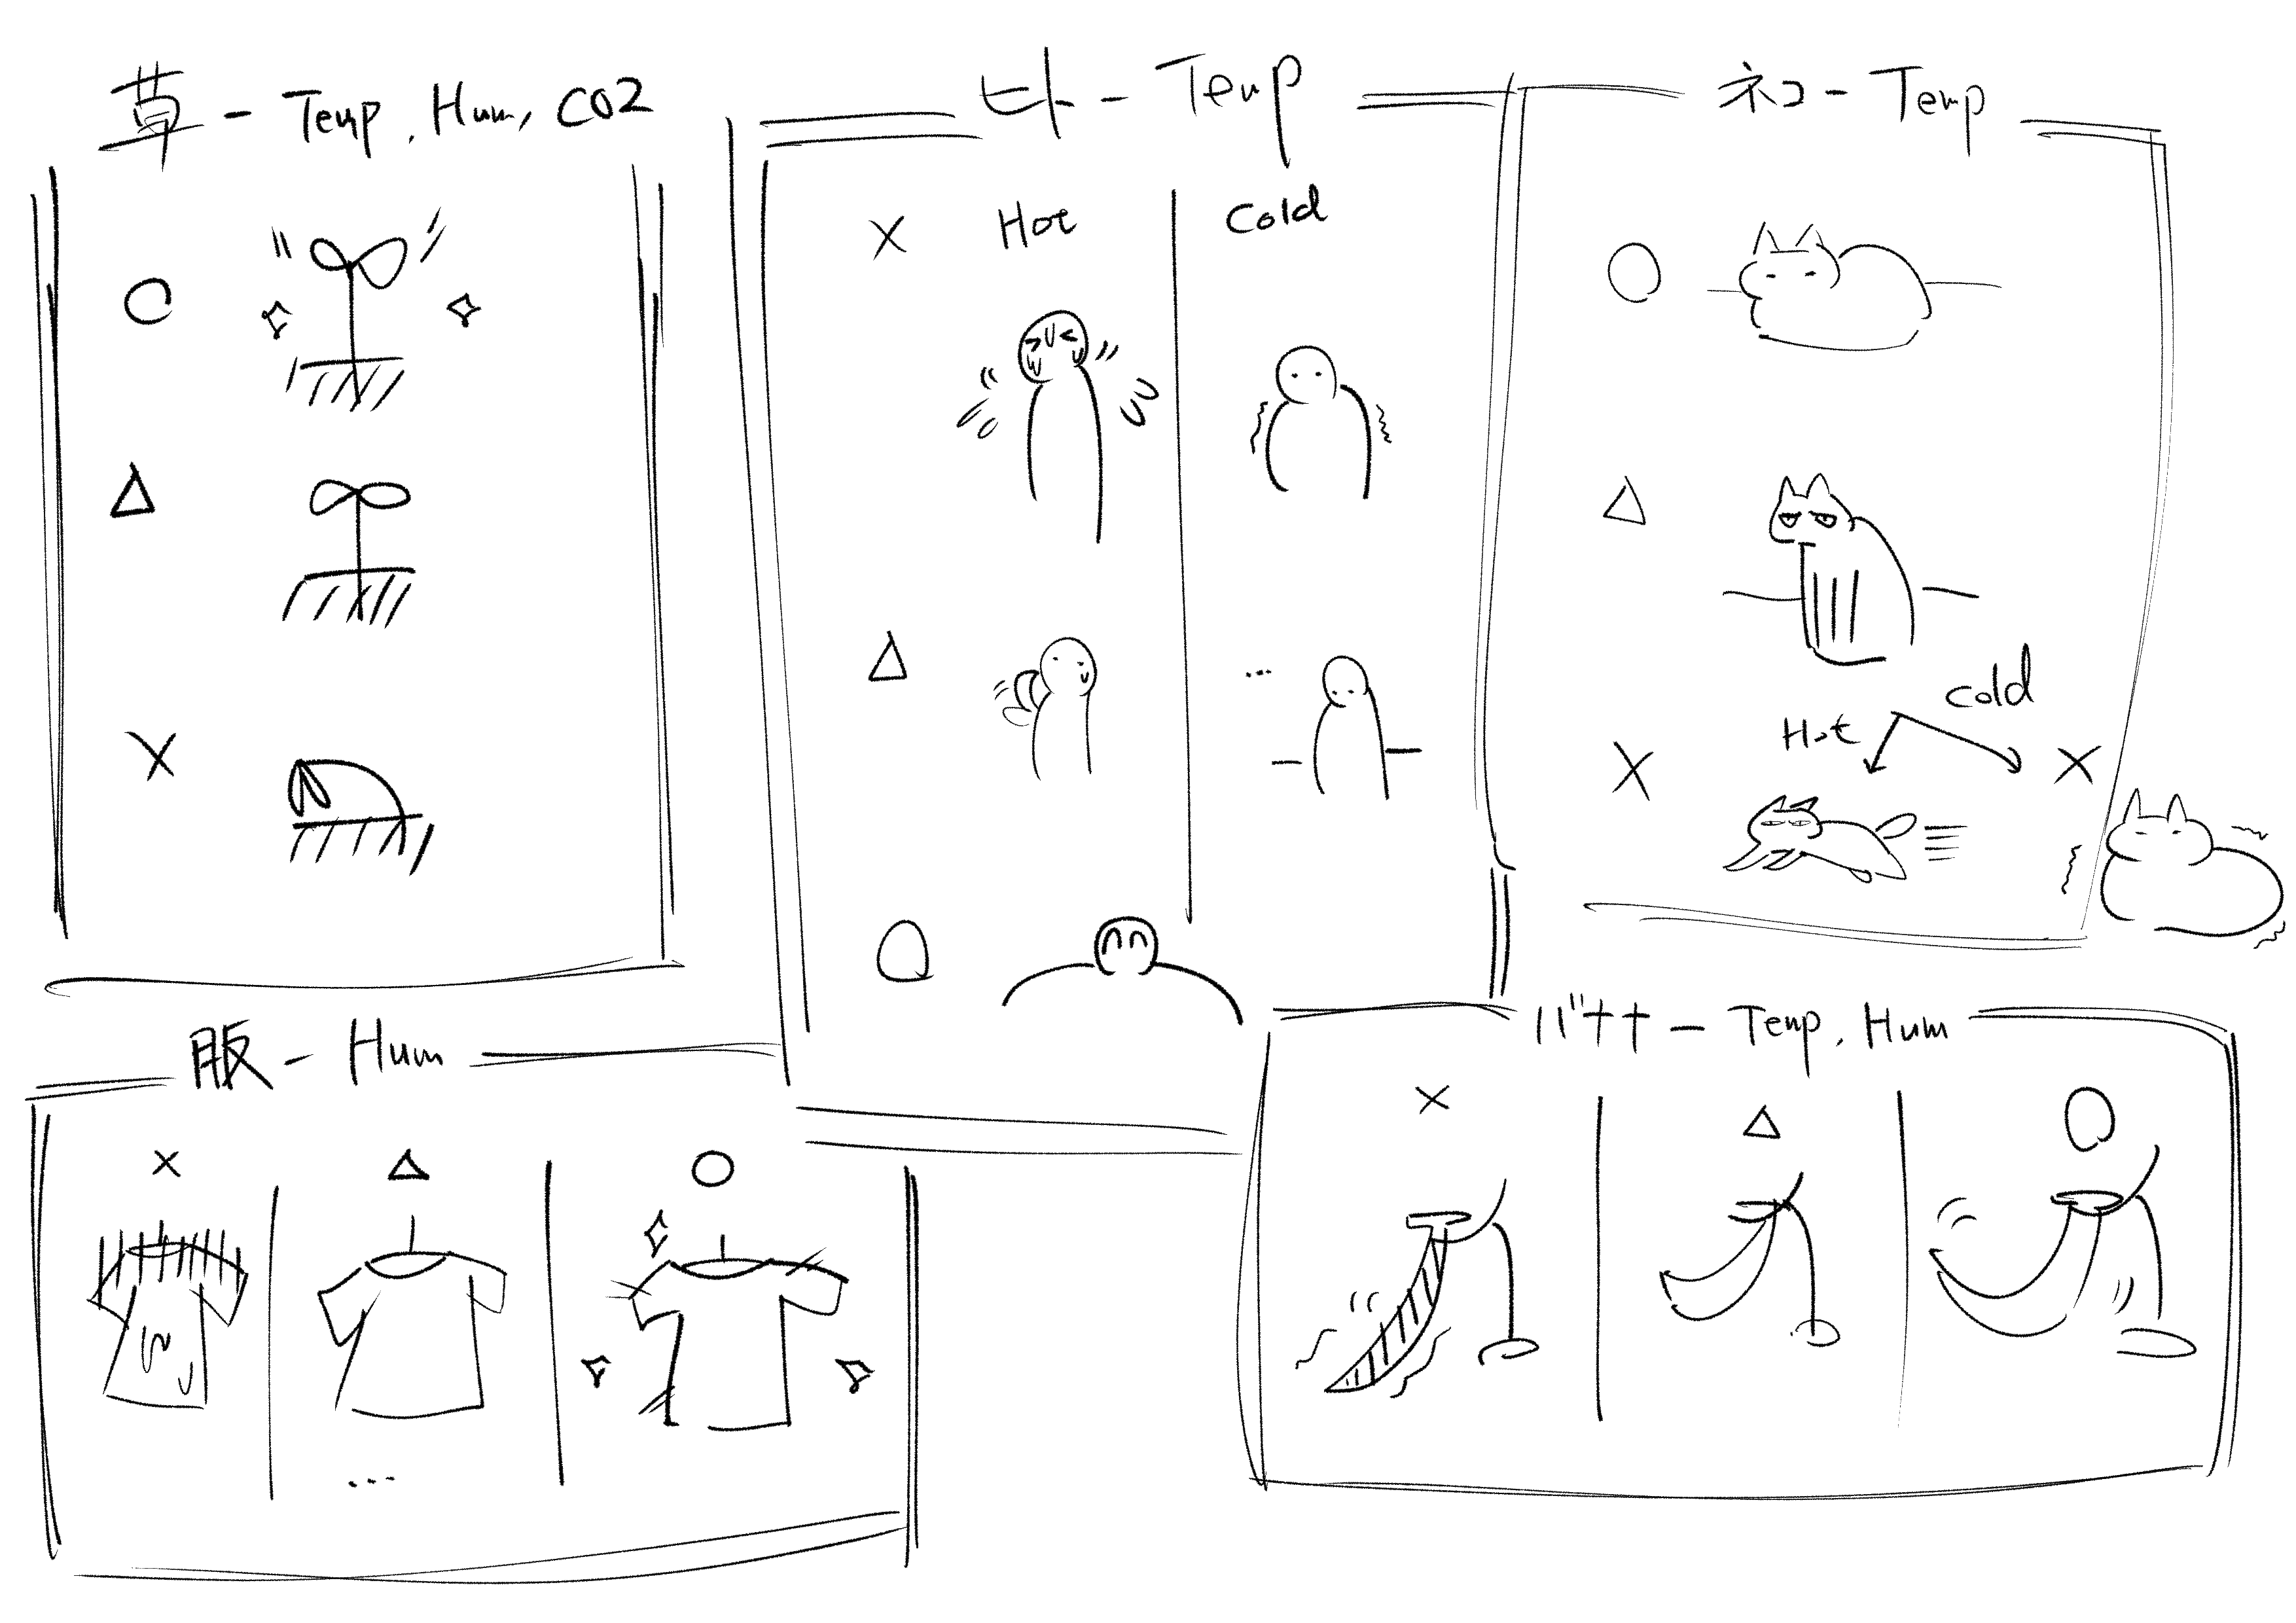 草 - Temp, Hum, CO2
○
△
×
ヒト - Temp
× Hot Cold
△ ...
○
ネコ - Temp
○
△
Hot cold
× ×
服 - Hum
× △ ○
...
バナナ - Temp, Hum
× △ ○